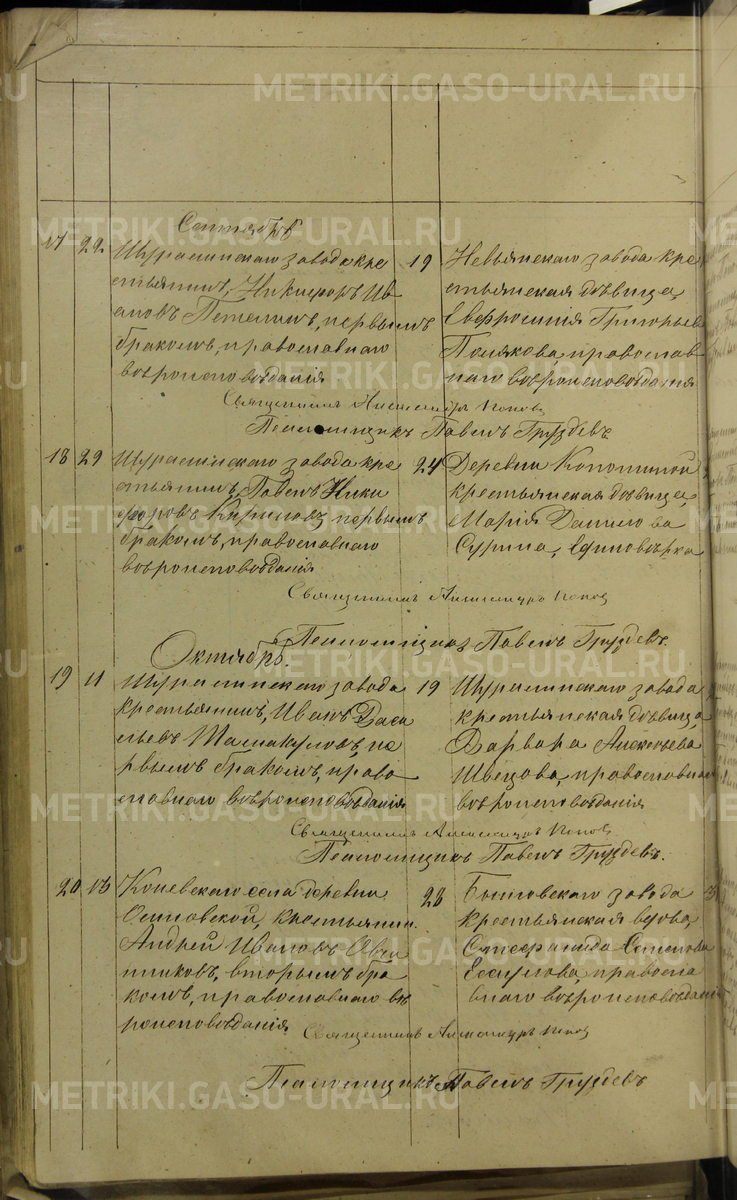 Сентябрь
17 22 Шуралинскаго завода кре
стьянинъ, Никифоръ Ив
ановъ Петелинъ, первымъ
бракомъ, православнаго
вѣроисповѣданія
19 Невьянскаго завода кре
стьянская дѣвица,
Евфросинія Григорьев
Полякова, православ
наго вѣроисповѣданія
Священникъ Александръ Поповъ
Псаломщикъ Павелъ Груздевъ
18 29 Шуралинскаго завода кре
стьянинъ, Павелъ Ники
форовъ первымъ
бракомъ, православнаго
вѣроисповѣданія
24 Деревни
крестьянская дѣвица,
Марія Данилова
Сурина, Единовѣрка
Священникъ Александръ Поповъ
Псаломщикъ Павелъ Груздевъ.
Октябрь.
19 11 Шуралинскаго завода
крестьянинъ, Иванъ Васи
льевъ пе
рвымъ бракомъ, право
славнаго вѣроисповѣданія
19 Шуралинскаго завода
крестьянская дѣвица,
Варвара Алексѣева
Швецова, православнаго
вѣроисповѣданія
Священникъ Александръ Поповъ
Псаломщикъ Павелъ Груздевъ.
20 Коневскаго села деревни
Осиновской, крестьянин.
Андрей Ивановъ Овчи
нниковъ, вторымъ бра
комъ, православнаго вѣ
роисповѣданія
28 Быньговскаго завода
крестьянская вдова,
Степанова
православ
наго вѣроисповѣданія
Священникъ Александръ Поповъ
Псаломщикъ Павелъ Груздевъ
METRIKI.GASO-URAL.RU